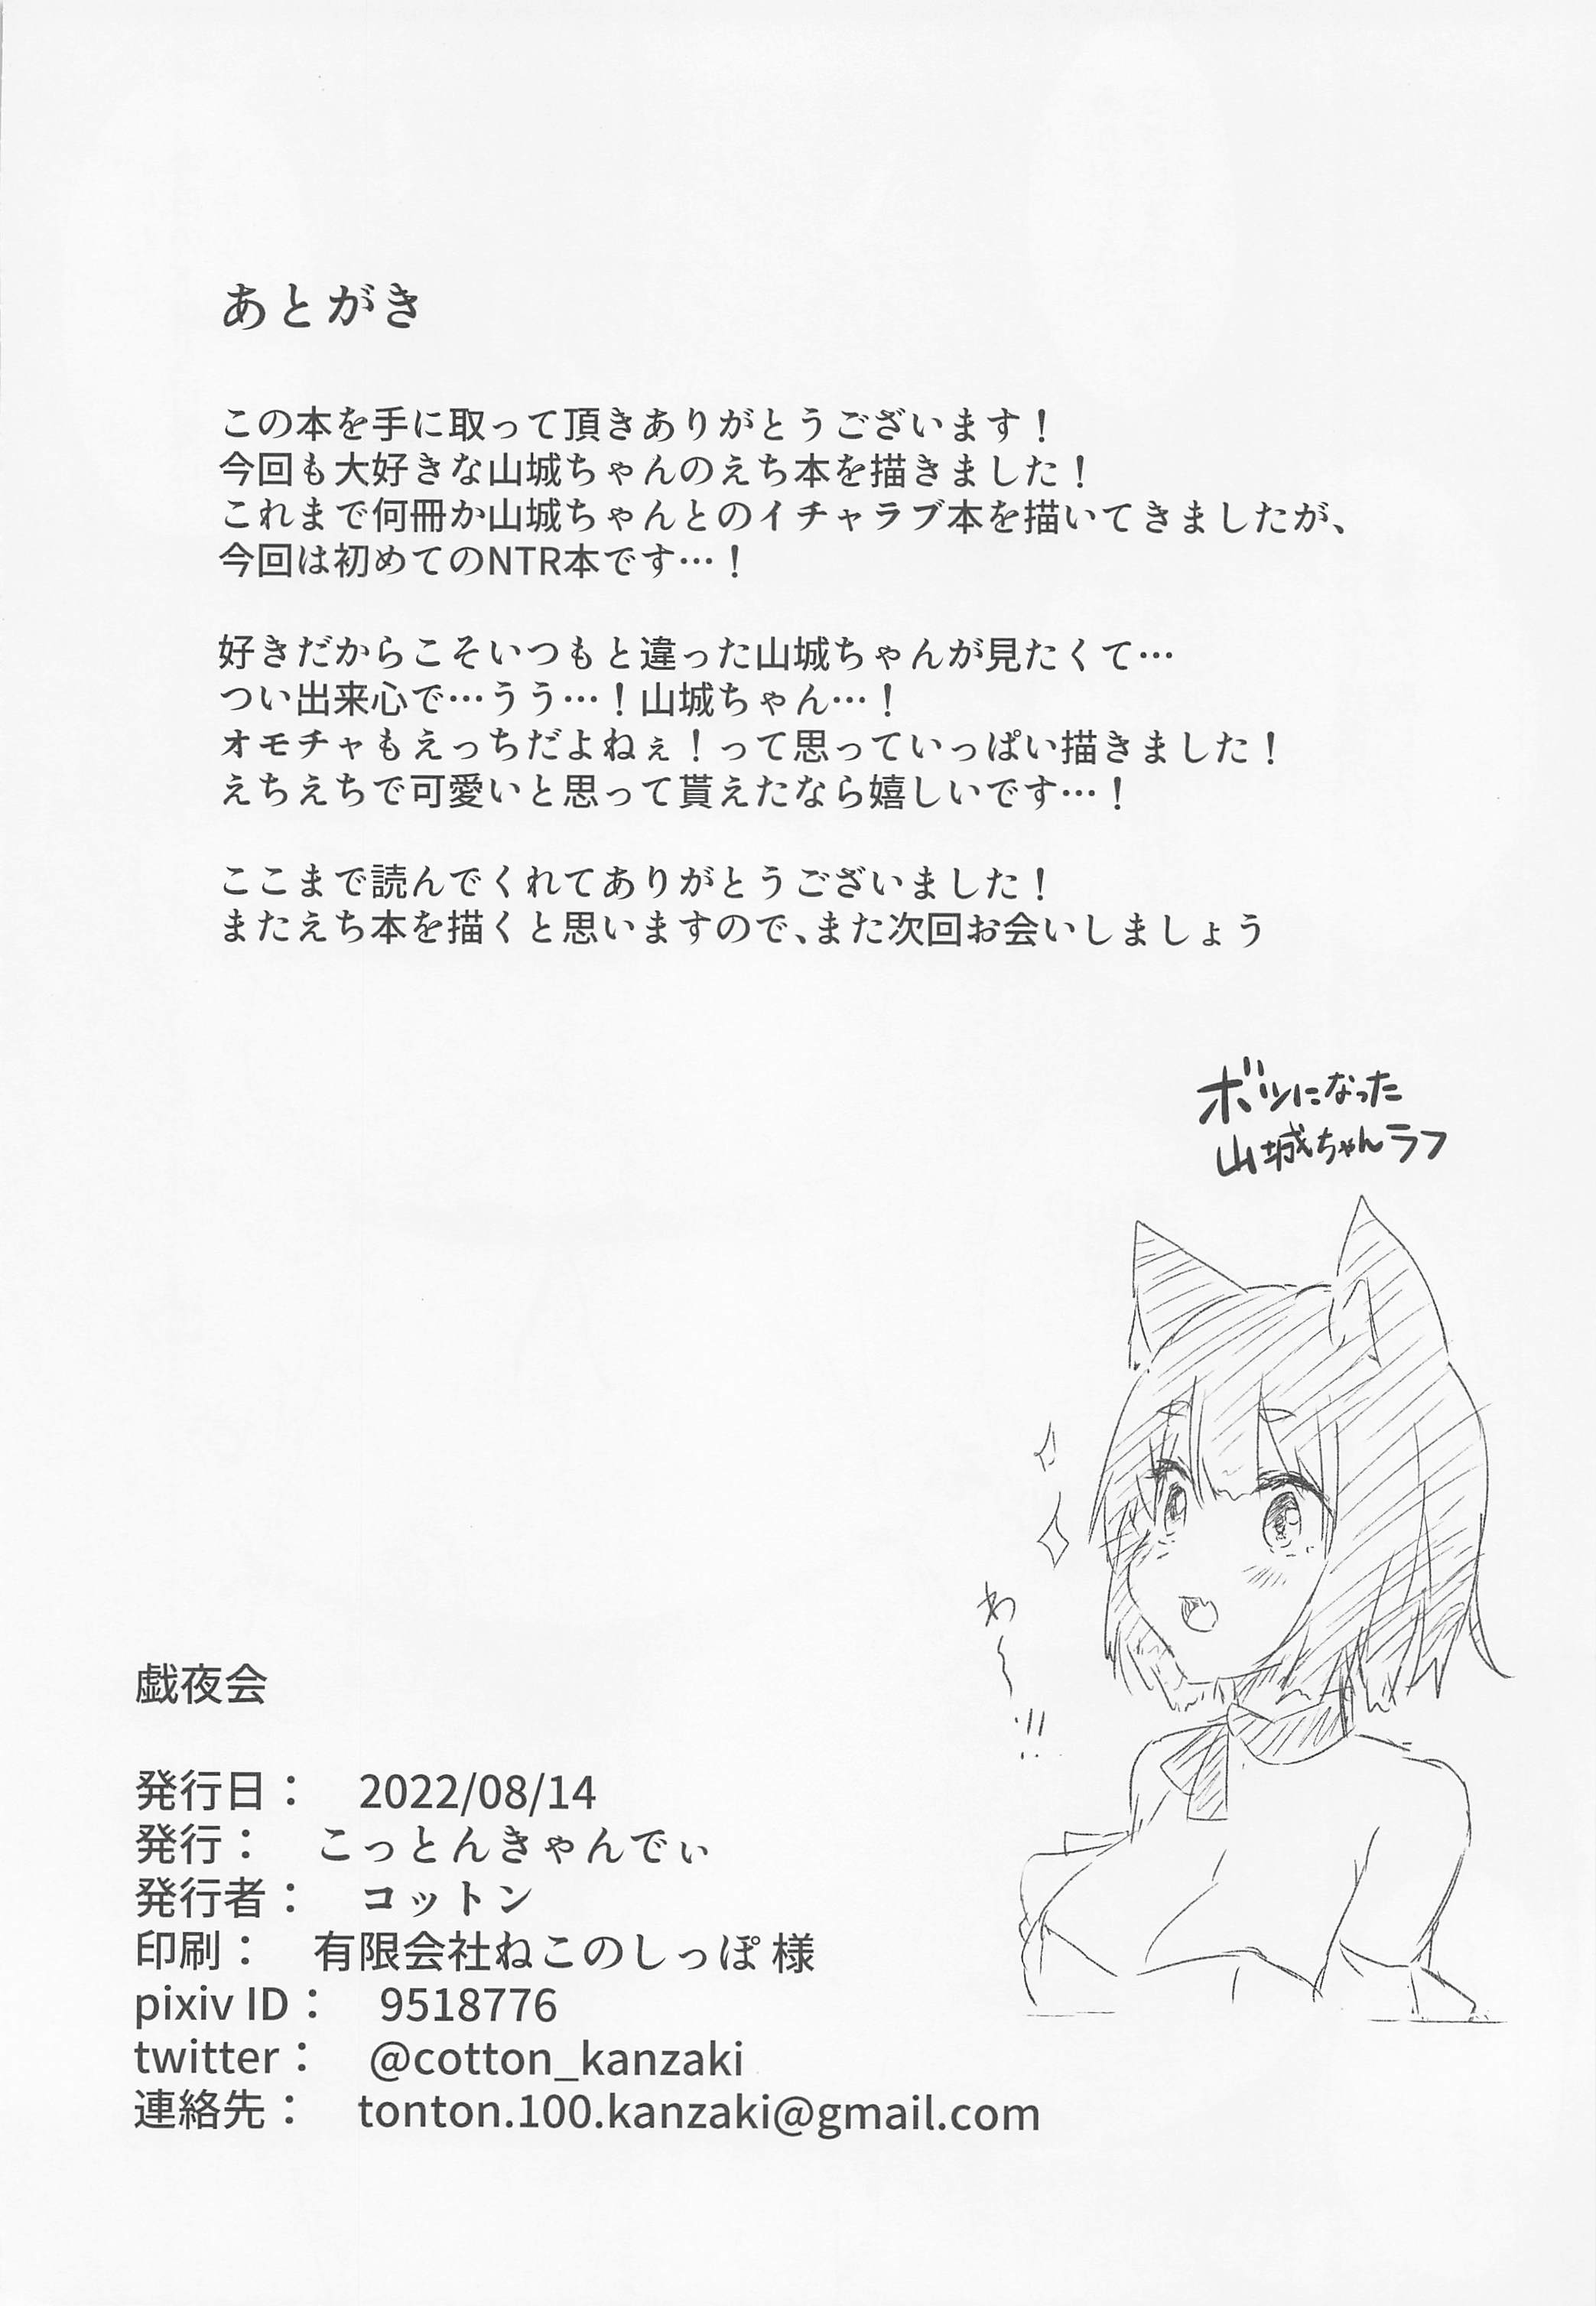 あとがき
この本を手に取って頂きありがとうございます！
今回も大好きな山城ちゃんのえち本を描きました！
これまで何冊か山城ちゃんとのイチャラブ本を描いてきましたが、
今回は初めてのNTR本です…！
好きだからこそいつもと違った山城ちゃんが見たくて…
つい出来心で…うう…！山城ちゃん…！
オモチャもえっちだよねぇ！って思っていっぱい描きました！
えちえちで可愛いと思って貰えたなら嬉しいです…！
ここまで読んでくれてありがとうございました！
またえち本を描くと思いますので、また次回お会いしましょう
ボツになった
山城ちゃんラフ
わ〜!!
戯夜会
発行日：　2022/08/14
発行：　こっとんきゃんでぃ
発行者：　コットン
印刷：　有限会社ねこのしっぽ 様
pixiv ID：　9518776
twitter：　@cotton_kanzaki
連絡先：　tonton.100.kanzaki@gmail.com